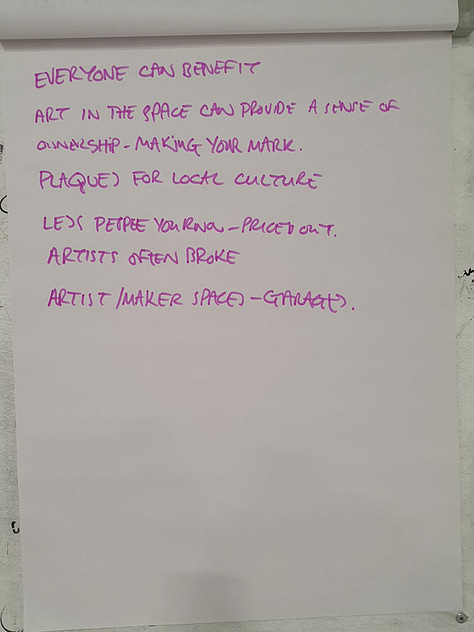 EVERYONE CAN BENEFIT
ART IN THE SPACE CAN PROVIDE A SENSE OF
OWNERSHIP - MAKING YOUR MARK.
PLAQUES FOR LOCAL CULTURE
LESS PEOPLE YOU KNOW - PRICED OUT.
ARTISTS OFTEN BROKE
ARTIST/MAKER SPACES - GARAGES.